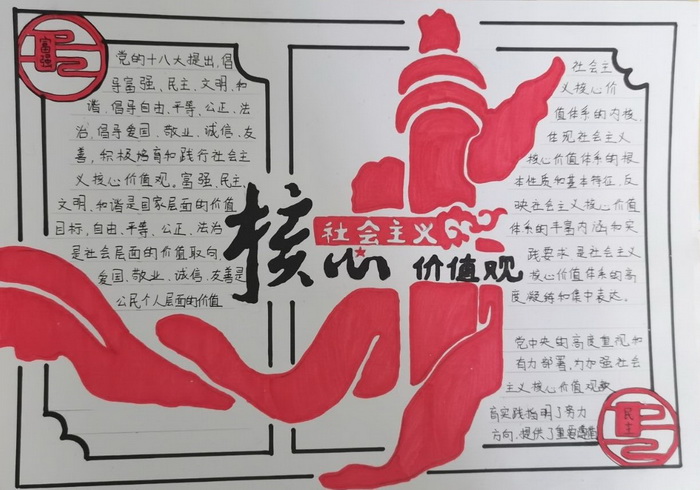 富强
党的十八大提出,倡
导富强、民主、文明、和
谐,倡导自由、平等、公正、法
治,倡导爱国、敬业、诚信、友
善,积极培育和践行社会主
义核心价值观。富强、民主
文明、和谐是国家层面的价值
目标,自由、平等、公正、法治
是社会层面的价值取向,
爱国、敬业、诚信、友善是
公民个人层面的价值
社会主义
核心价值观
社会主
义核心价
值体系的内核,
体现社会主义
核心价值体系的根
本性质和基本特征,反
映社会主义核心价值
体系的丰富内涵和实
践要求 是社会主义
核心价值体系的高
度凝练和集中表达。
党中央的高度重视和
有力部署,为加强社会
主义核心价值观教
育实践指明了努力
方向,提供了重要遵循
民主